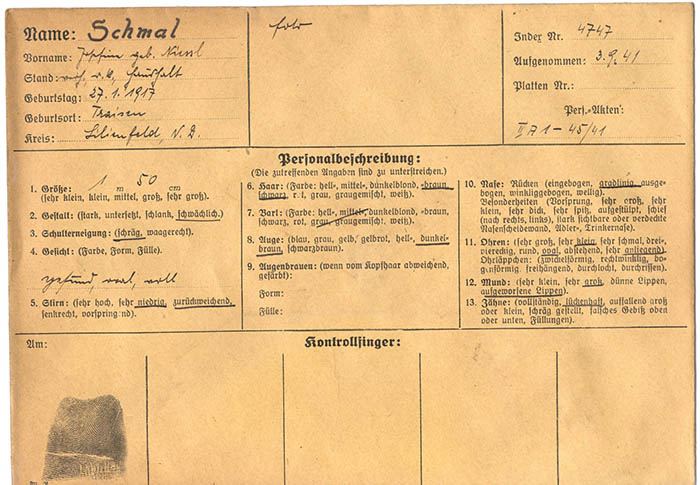 Name: Schmal
Vorname: geb. Niessl
Stand: r.k, Haushalt
Geburtstag: 27. 1. 1917
Geburtsort: Traisen
Kreis: Lilienfeld, N. D.
foto
Index Nr. 4747
Aufgenommen: 3. 9. 41
Platten Nr.:
Pers.-Akten:
II A 1 - 45/41
Personalbeschreibung:
(Die zutreffenden Angaben sind zu unterstreichen.)
1. Größe: 1 m 50 cm
(sehr klein, klein, mittel, groß, sehr groß).
2. Gestalt: (stark, untersetzt, schlank, schwächlich.)
3. Schulterneigung: (schräg, waagerecht.)
4. Gesicht: (Farbe, Form, Fülle).
gesund, oval, voll
5. Stirn: (sehr hoch, sehr niedrig, zurückweichend,
senkrecht, vorspring nd).
6. Haar: (Farbe: hell-, mittel-, dunkelblond, -braun,
schwarz, r t, grau, graugemischt, weiß).
7. Bart: (Farbe: hell-, mittel-, dunkelblond, -braun,
schwarz, rot, grau, graugemischt, weiß).
8. Auge: (blau, grau, gelb, gelbrot, hell-, dunkel-
braun, schwarzbraun).
9. Augenbrauen: (wenn vom Kopfhaar abweichend,
gefärbt):
Form:
Fülle:
10. Nase: Rücken (eingebogen, gradlinig, ausge-
bogen, winkliggebogen, wellig).
Besonderheiten (Vorsprung, sehr groß, sehr
klein, sehr dick, sehr spitz, aufgestülpt, schief
(nach rechts, links), stark sichtbare oder verdeckte
Nasenscheidewand, Adler-, Trinkernase).
11. Ohren: (sehr groß, sehr klein, sehr schmal, drei-,
viereckig, rund, oval, abstehend, sehr anliegend).
Ohrläppchen: (zwickelförmig, rechtwinklig, bo-
genförmig, freihängend, durchlocht, durchrissen).
12. Mund: (sehr klein, sehr groß, dünne Lippen,
aufgeworfene Lippen).
13. Zähne: (vollständig, lückenhaft, auffallend groß
oder klein, schräg gestellt, falsches Gebiß oben
oder unten, Füllungen).
Am:
Kontrollfinger: